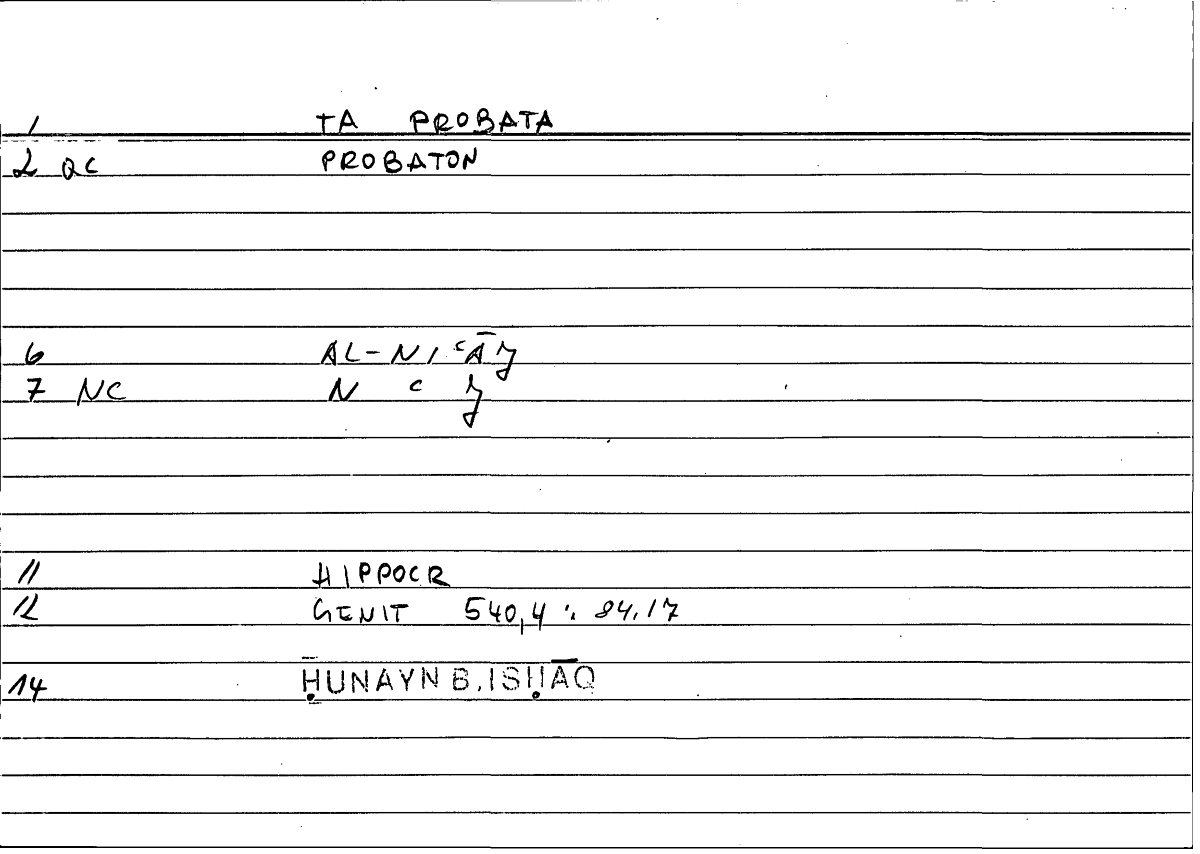 1 TA PROBATA
2 QC PROBATON
6 AL-NIʿĀǧ
7 NC N ʿ ǧ
11 HIPPOCR
12 GENIT 540,4 : 84.17
14 ḤUNAYN B. ISḤĀQ